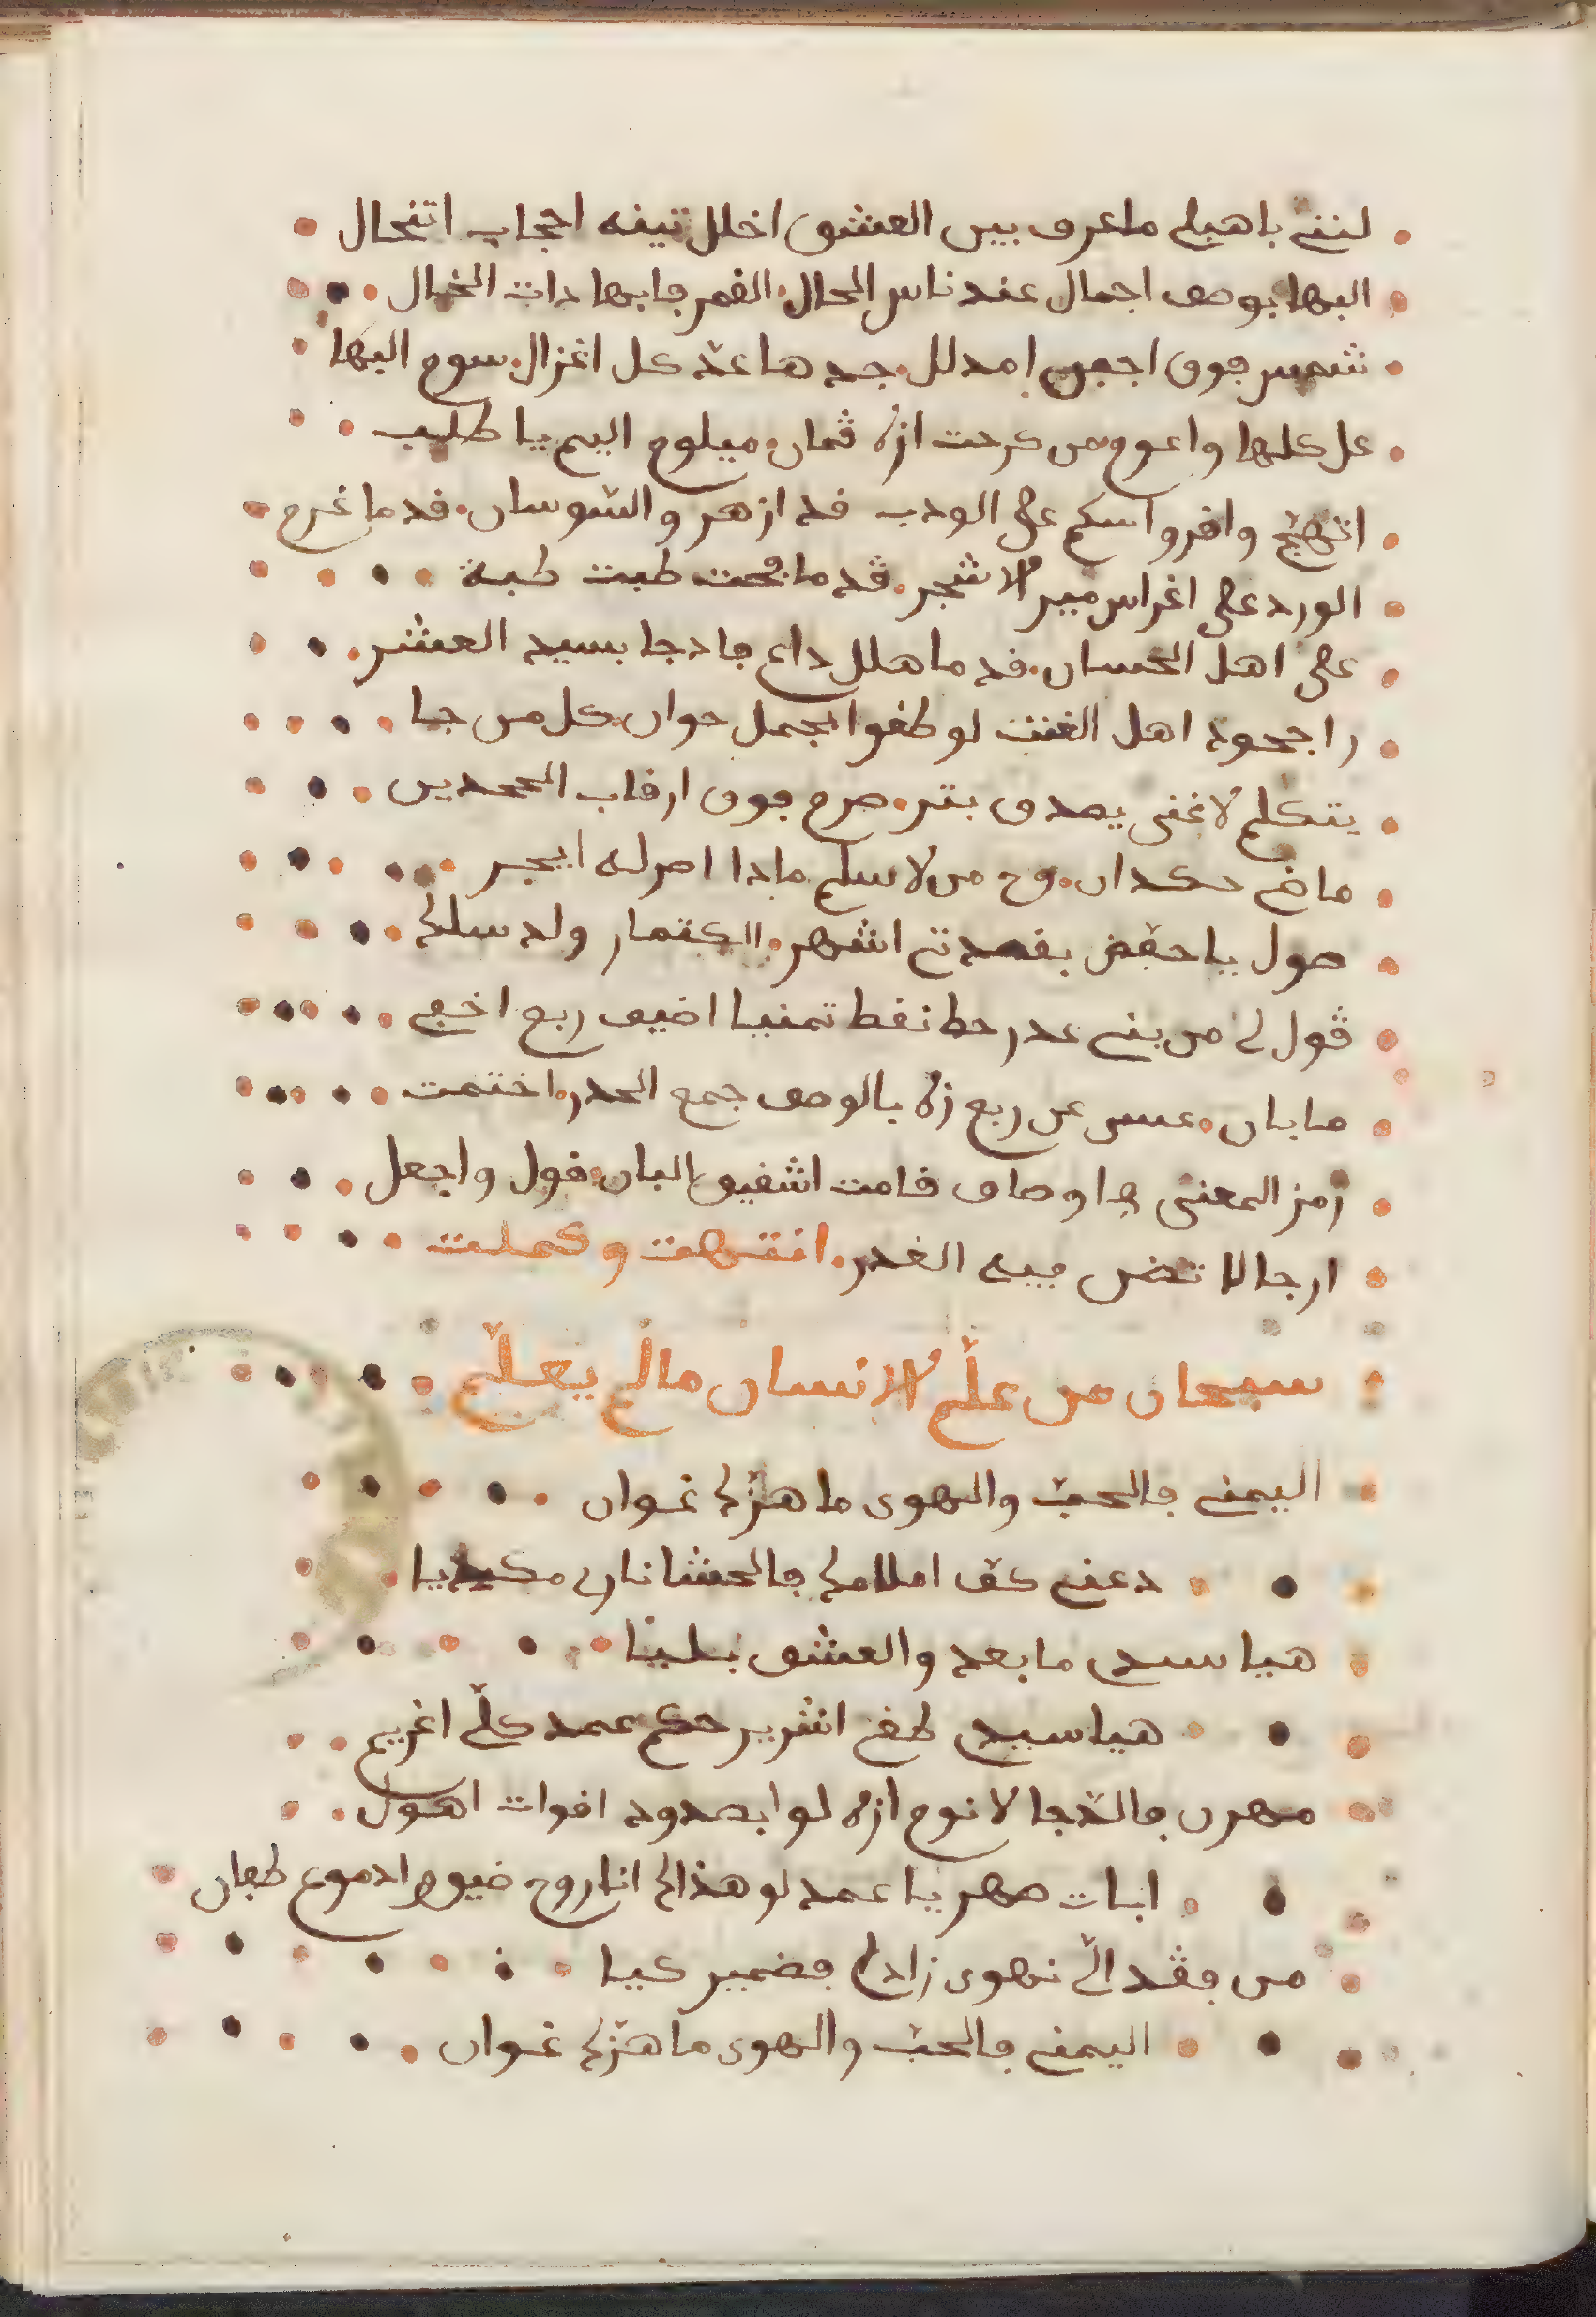 لننے باهبلے ماعرف بين العشق اخلل تيفه احجاب اتخال
البها بوصف اجمال عند ناس الحال. القمر فابها دات الخال
شمس فوق اجبين امدلل. جدها عد كل اغزال. سوم البها
عل كلها واعوم من كرحت ازه ڤمان. ميلوم اليم يا طلب
اتهج وافرو اسكم على الودب قد ازهر والسوسان. قد ما غرم
الورد على اغراس مير الاشجر. قد ما بحت طبت طبة
على اهل الحسان. قد ما هلل داع فادجا بسيد العشر
را جحود اهل الغنت لو طغوا بجمل حوان. كل من جا
يتكلم لا غنى يصدق بتر. صرم فوق ارقاب الجحدين
ماض حكدان. وح من لا سلم ماذا اصر له ايجر
صول يا حفض بقصدتے اشهر. الكتمار ولد سلك
ڤول لے من بنے عدر حط نفط تمنيا اضيف ربع اخبے
مابان. عسى عن ربع زه بالوصف جمع الحدر. اختمت
رمز المعنى فاوصاف قامت اشفيق البان. قول واجعل
ارجا لا تضن فيه الغدر. انتهت وكملت
سبحان من علّم الانسان مالم يعلّم
اليمنے فالحبّ والهوى ما هزّك غوان
دعنے كفّ املامك فالحشا نارے مكديا
هيا سيدے ما بعد والعشق بليّا
هيا سيدے طغے اشرير حكم عمد كلّ اغريم
مهرن فالدّجا لا نوم ازه لو ابصدود افوات اهول
ابات صهر يا عمد لو هذاك اناروح ضيوم ادموع طبعان
من فقد الّے نهوى زادك فضمير كيا
اليمنے فالحبّ والهوى ما هزّك غوان